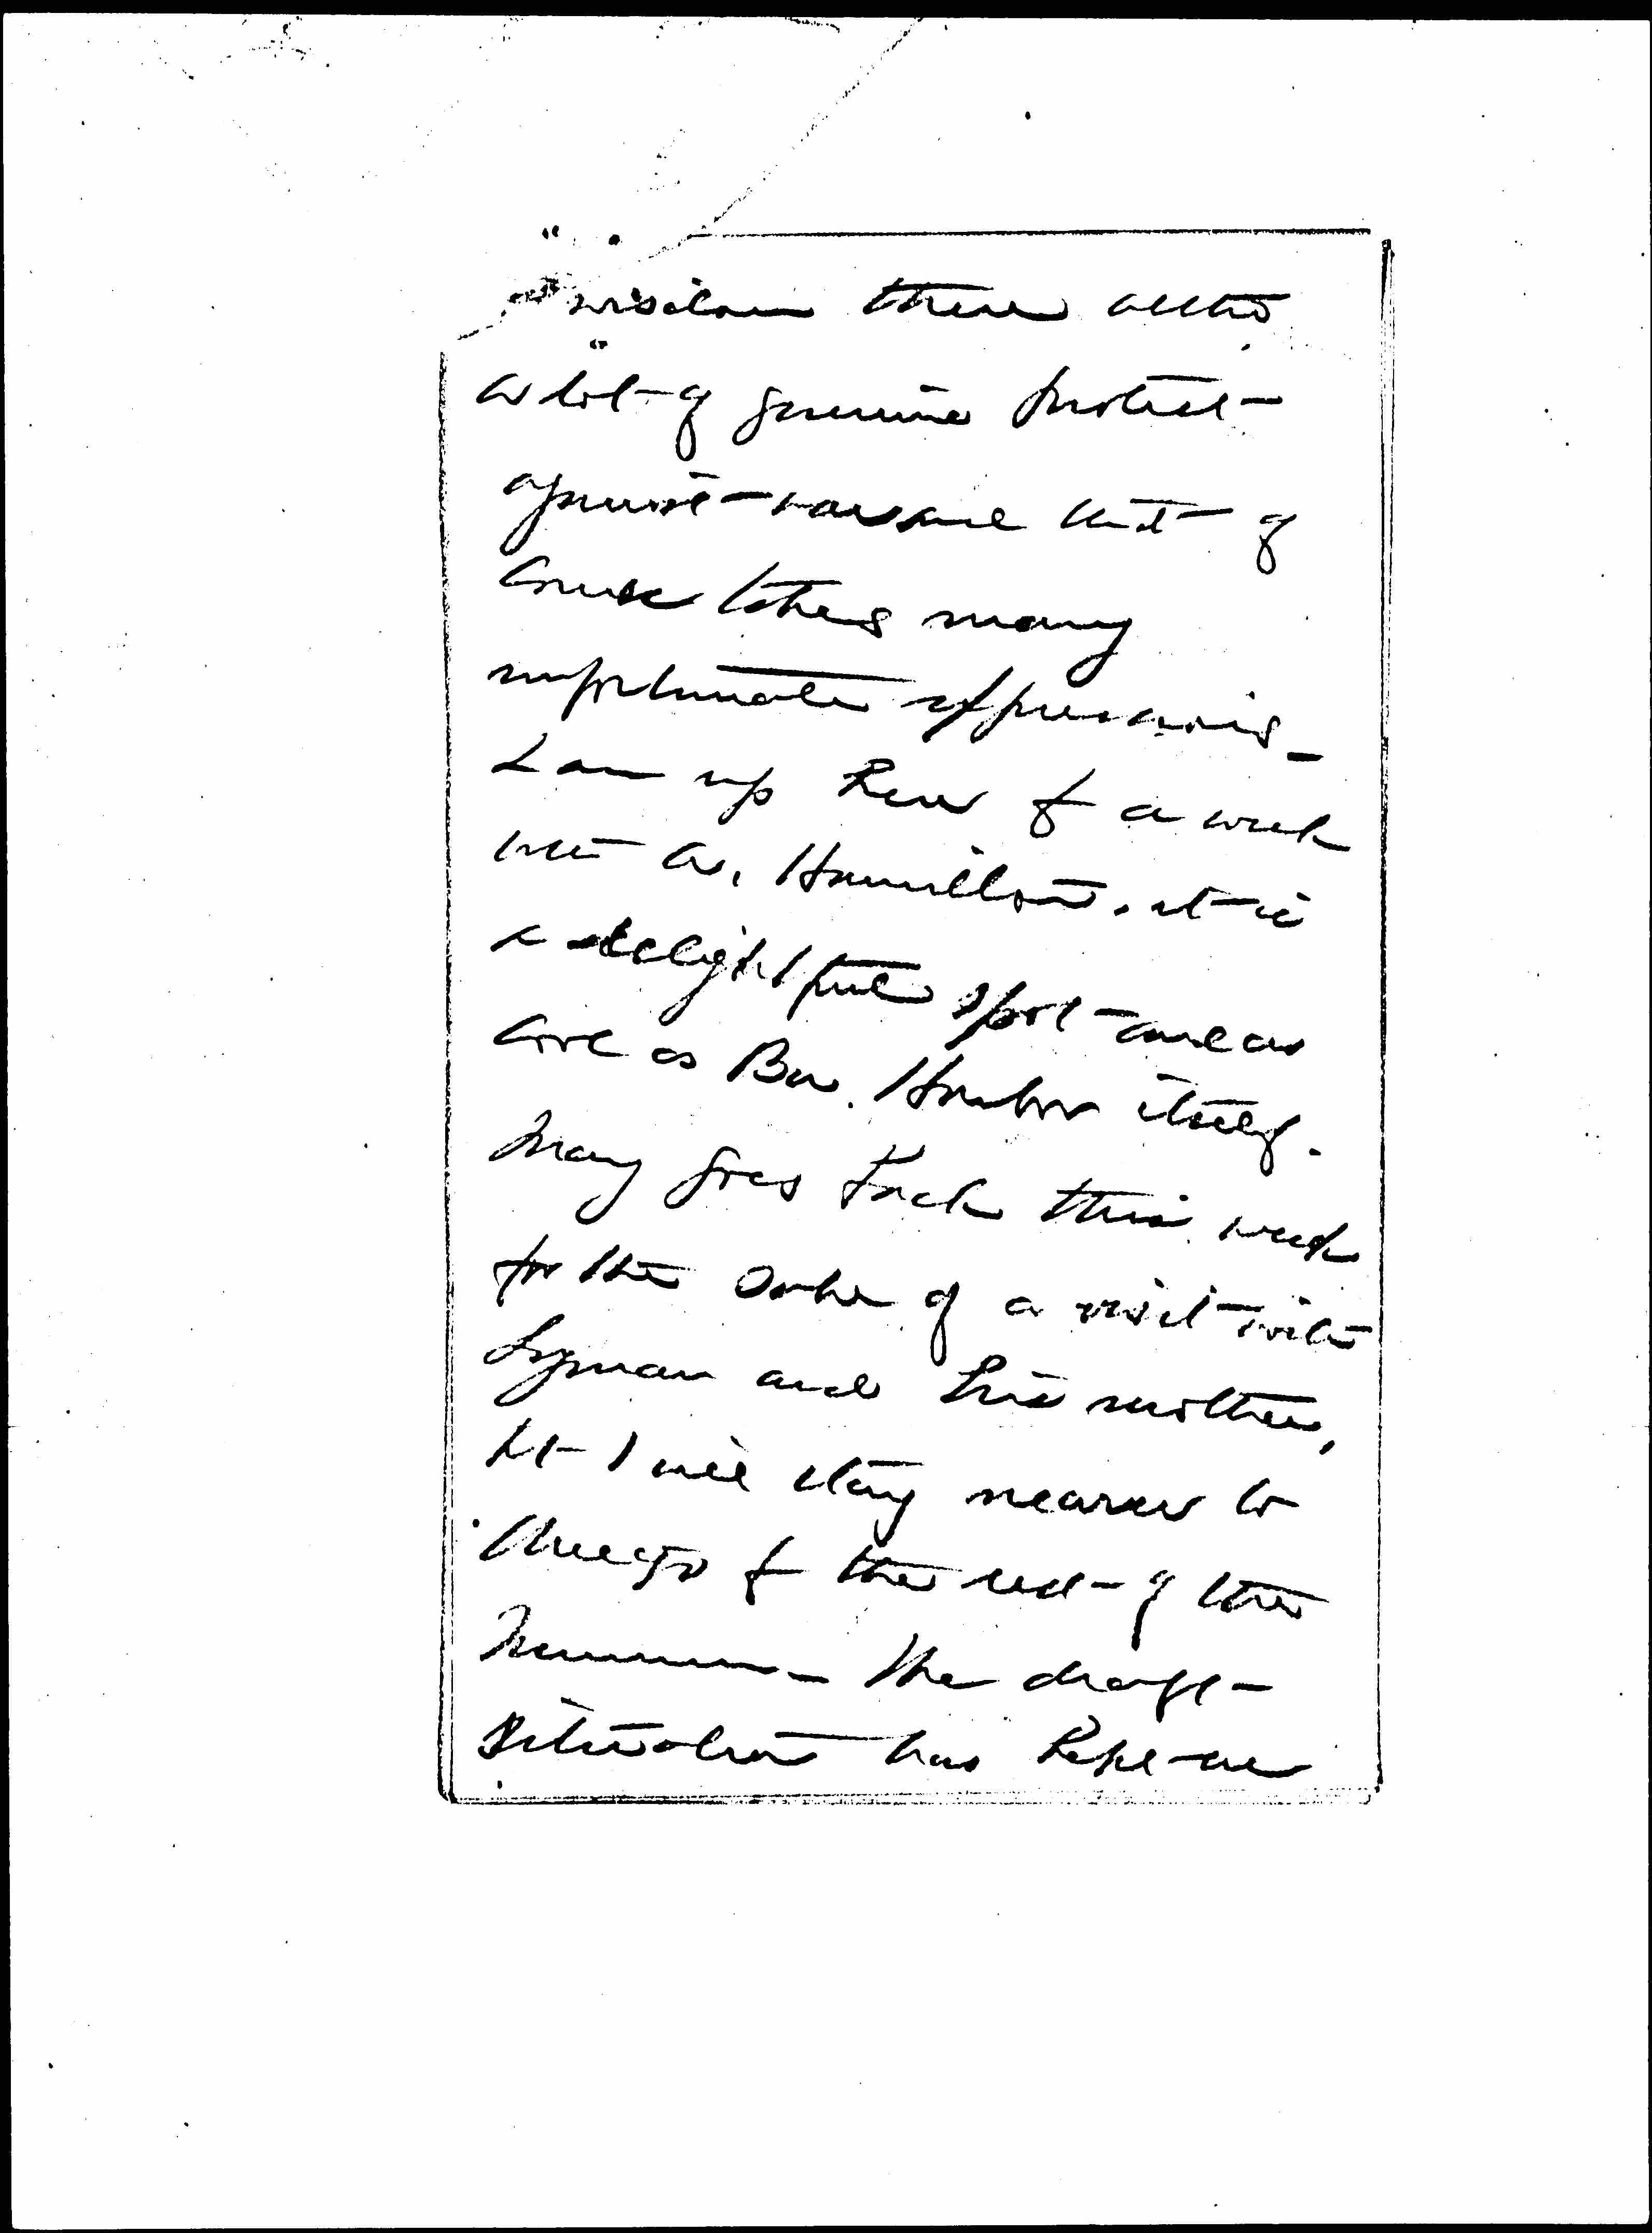 wisdom there altho
a lot of genuine protest
against war and but of
course takes many
unfortunate expressions –
I am up here for a week
with A. Hamilton. it is
a delightful spot – and as
cool as Bar Harbor itself.
Mary goes back this week
for the sake of a visit with
Lyman and his mother,
but I will stay nearer to
Chicago for the rest of the
summer – The draft
situation has kept me